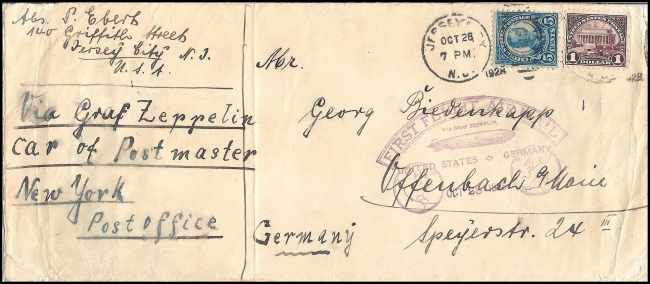 Abs. S. Ebert
140 Griffith Street
Jersey City N. J.
U. S. A.
Via Graf Zeppelin
car of Postmaster
New York
Post office
JERSEY CITY
OCT 28
7 PM
N.J. 1928
5 CENTS 5
1 DOLLAR 1
Mr.
Georg Biedenkapp
FIRST FLIGHT AIR MAIL
VIA GRAF ZEPPELIN
UNITED STATES GERMANY
OCT 28
Offenbach a/Main
Speyerstr. 24 III
Germany